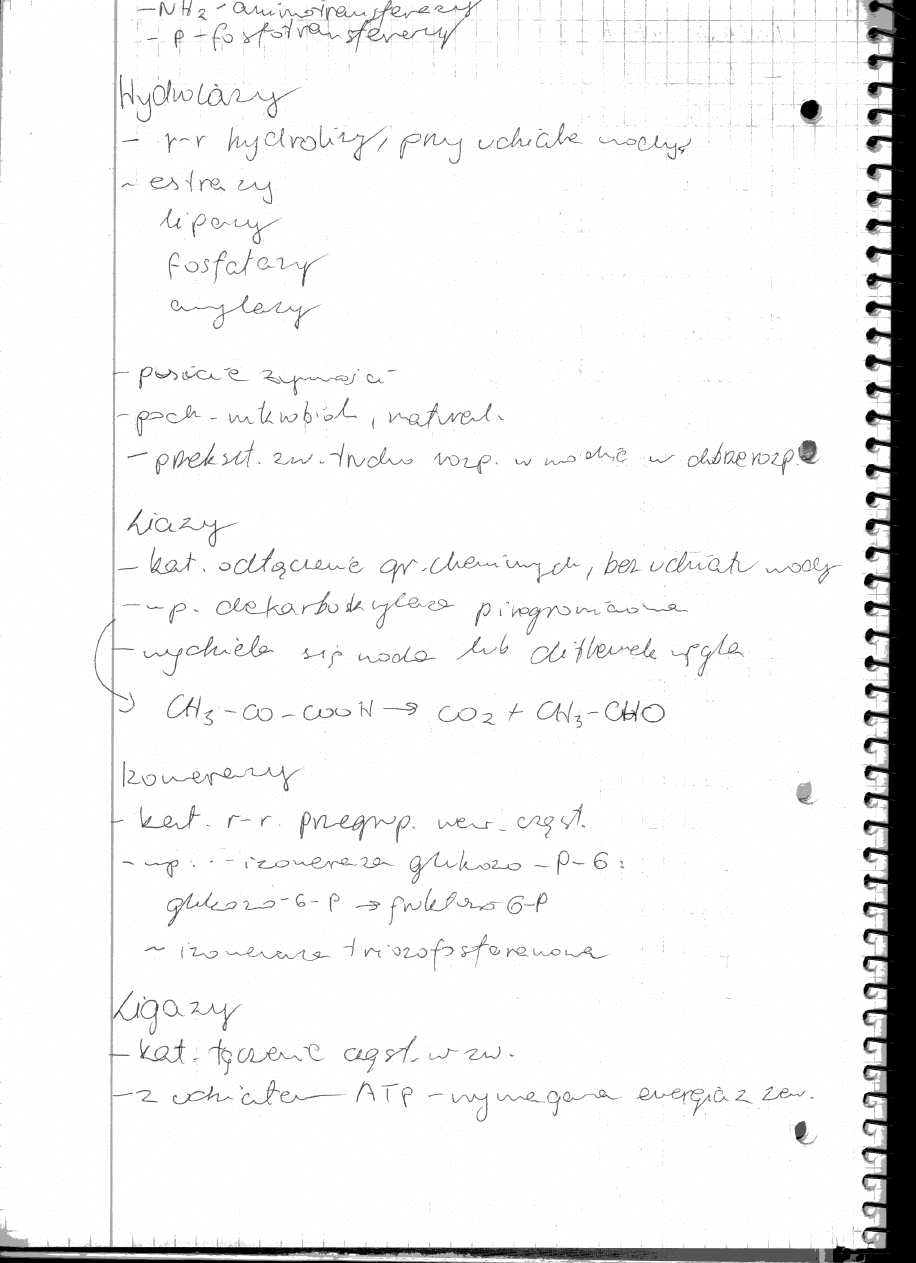 - NH2 - aminotransferazy
- P - fosfotransferazy
Hydrolazy
- r-r hydrolizy, przy udziale wody,
- estrazy
lipazy
fosfatazy
amylazy
- żywności
- poch. mikrobiol, natural.
- przekszt. zw. trudno rozp. w wodzie w dobrze rozp.
Liazy
- kat. odłączenie gr. chemicznych, bez udziału wody
- np. dekarboksylaza pirogronianowa
- wydziela się woda lub ditlenek węgla
CH3-CO-COOH → CO2 + CH3-CHO
Izomerazy
- kat. r-r. przegrup. wew. cząst.
- np. izomeraza glukozo-P-6:
glukozo-6-P → fruktozo 6-P
~ izomeraza triozofosforanowa
Ligazy
- kat. łączenie cząst. w zw.
- z udziałem ATP - wymagana energia z zew.